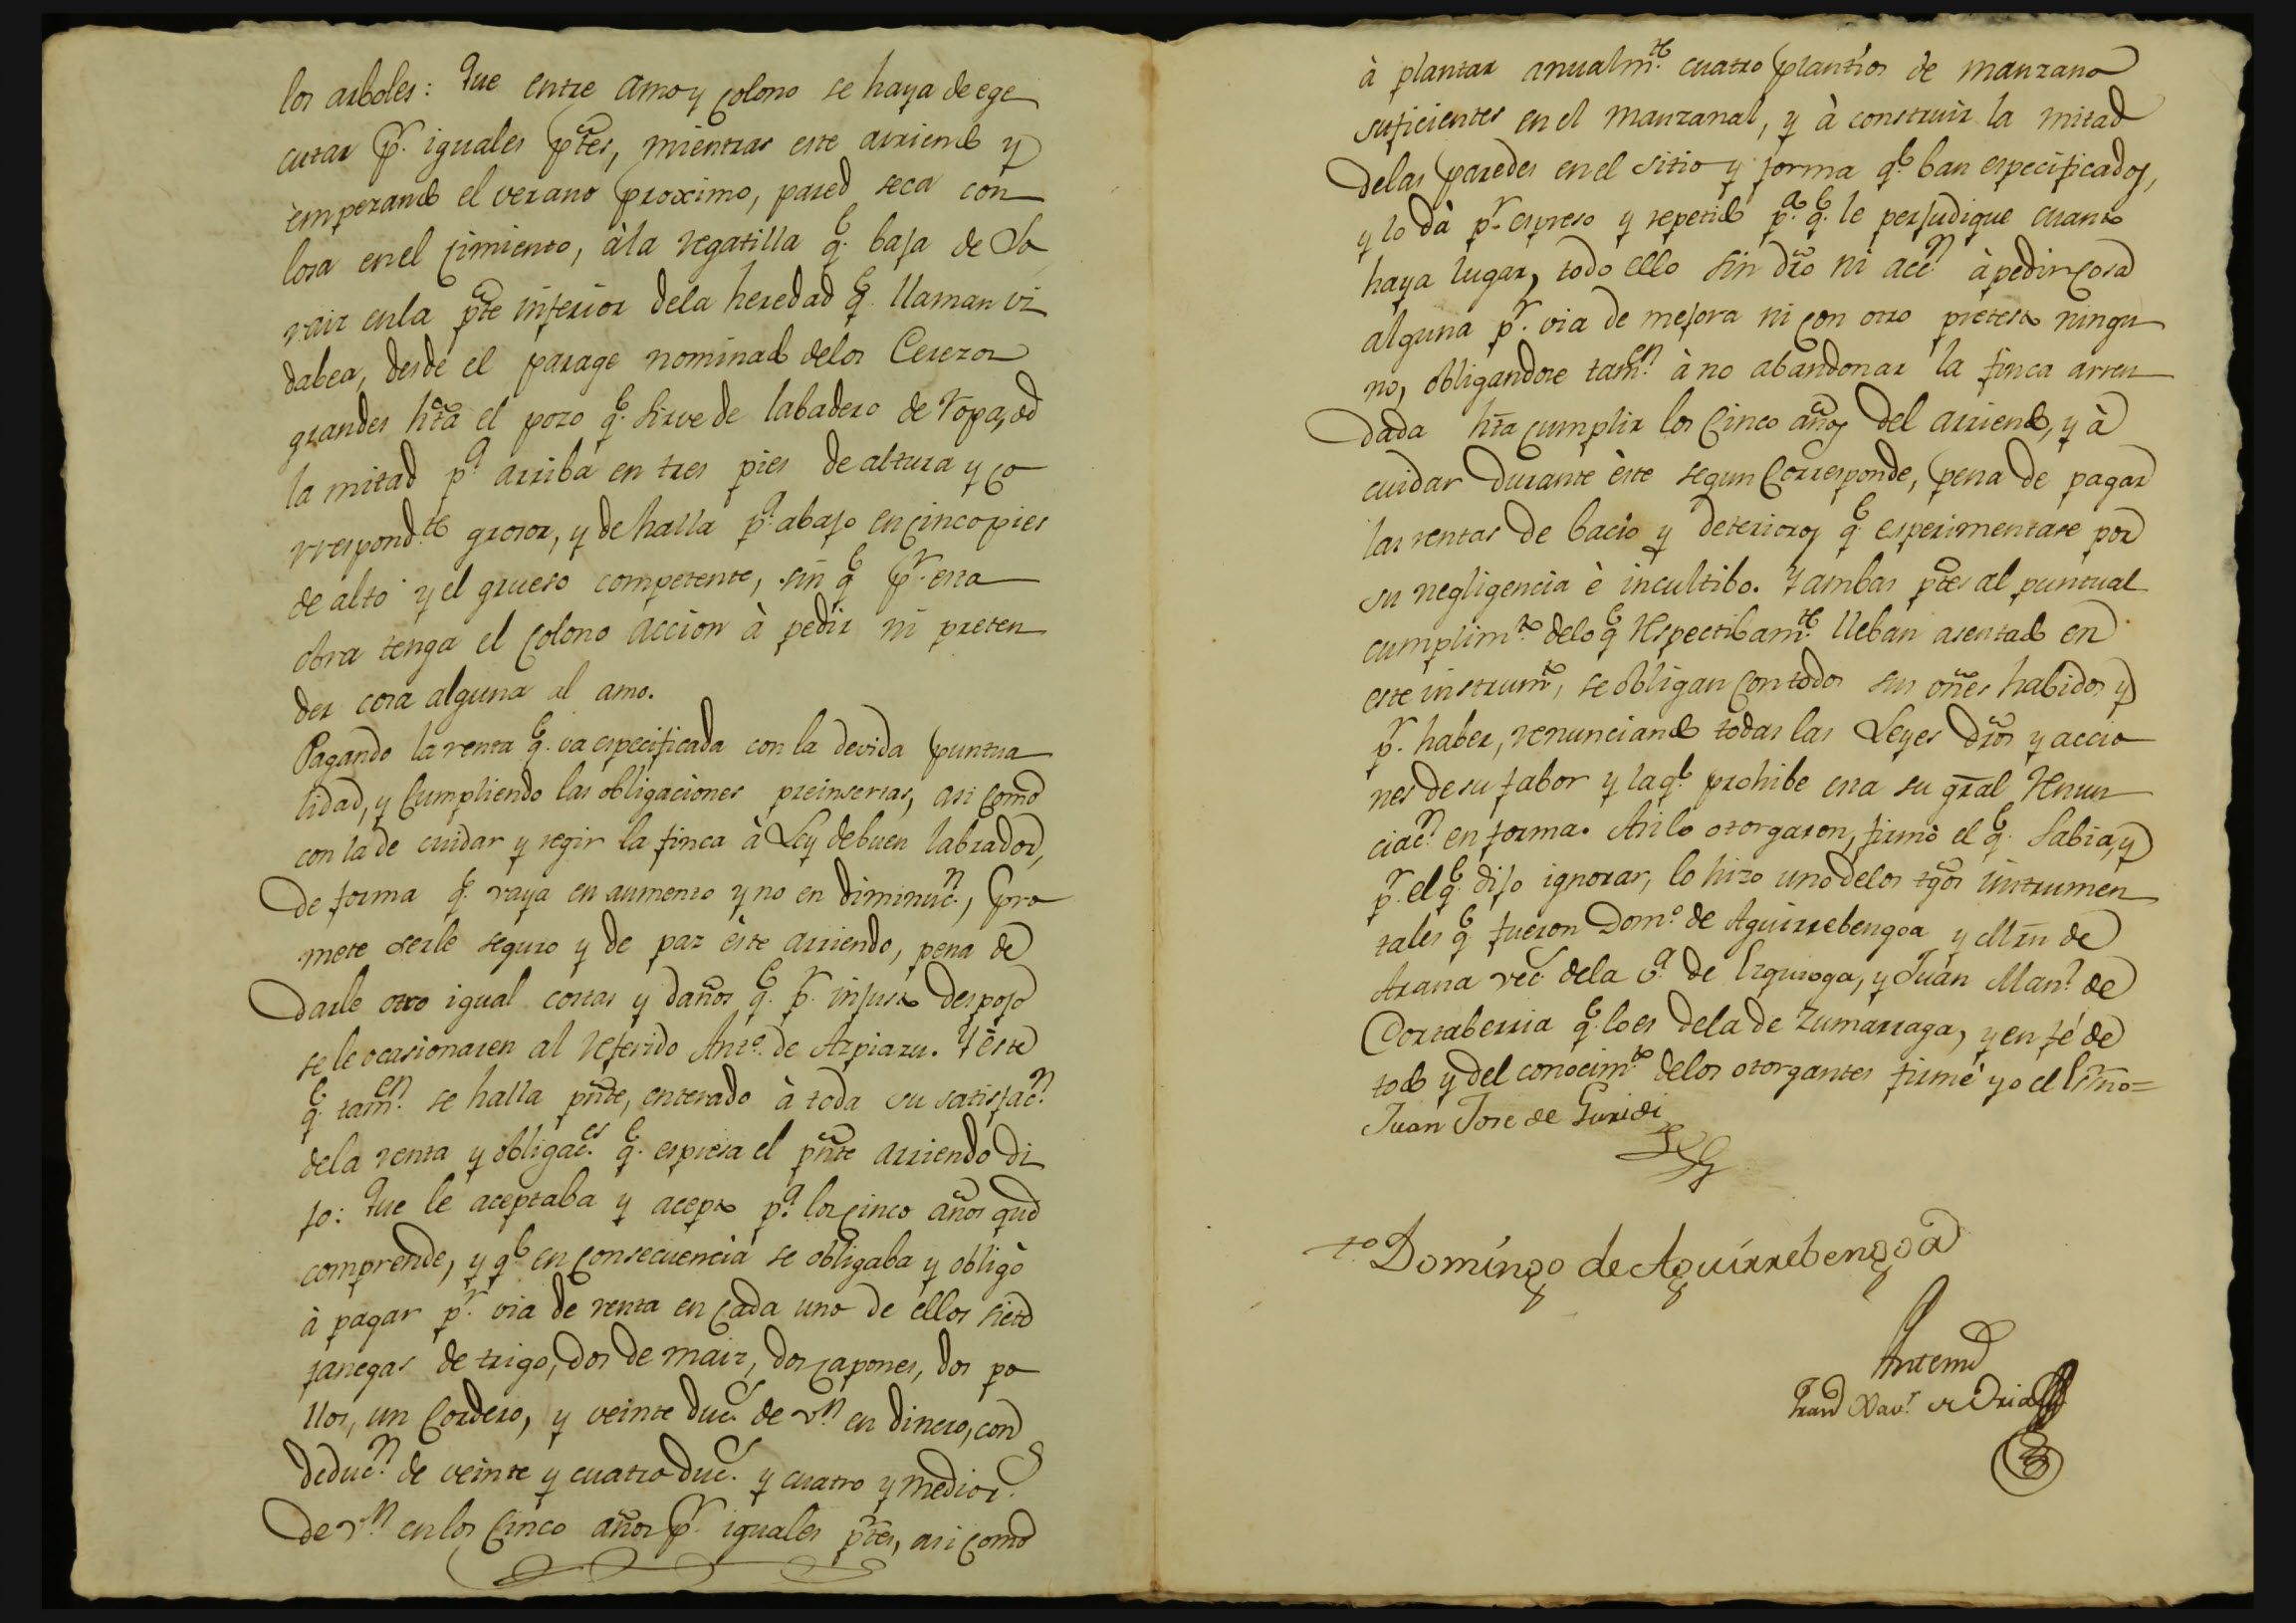 los arboles: Que entre amo y colono se haya de ege
cutar pr. iguales ptes, mientras este arriendo y
empezando el verano proximo, pared seca con
losa en el cimiento, à la regatilla qe. baja de Lo
raiz en la pte inferior dela heredad qe. llaman vi
dabea, desde el parage nominado delos Cerezos
grandes hta el pozo qe. sirve de labadero de ropa, de
la mitad pa. arriba en tres pies de altura y co
rrespondte. grosor, y de halla pa. abajo en cinco pies
de alto y el grueso competente, sin qe pr. esta
obra tenga el colono accion à pedir ni preten
der cosa alguna al amo.
Pagando la renta qe. va especificada con la devida puntua
lidad, y cumpliendo las obligaciones preinsertas, asi como
con la de cuidar y regir la finca à Ley de buen labrador,
de forma qe. vaya en aumento y no en diminucn., pro
mete serle seguro y de paz èste arriendo, pena de
darle otro igual costas y daños qe. pr. injusto despojo
se le ocasionaren al referido Anto. de Azpiazu. Y èste
qe. tamen. se halla pnte, enterado à toda su satisfacn.
dela renta y obligaces. qe. espresa el pnte arriendo di
jo: Que le aceptaba y acepto pa. los cinco años que
comprende, y qe en consecuencia se obligaba y obligò
à pagar pr. via de renta en cada uno de ellos siete
fanegas de trigo, dos de maiz, dos capones, dos po
llos, un Cordero, y veinte ducs. de vn. en dinero, con
deducn. de veinte y cuatro ducs. y cuatro y medio rs.
de vn. en los cinco años pr. iguales ptes, asi como
à plantar anualmte. cuatro plantíos de manzano
suficientes en el manzanal, y à construir la mitad
delas paredes en el sitio y forma qe ban especificados,
y lo dà pr. espreso y repetido pa. qe. le perjudique cuanto
haya lugar, todo ello sin dro ni accn. à pedir cosa
alguna pr. via de mejora ni con otro pretesto ningu
no, obligandose tamen. à no abandonar la finca arren
dada hta cumplir los cinco años del arriendo, y à
cuidar durante èste segun corresponde, pena de pagar
las rentas de bacio y deterioros qe. esperimentase por
su negligencia è incultibo. Y ambas ptes al puntual
cumplimto. delo qe respectibamte. lleban asentado en
este instrumto, se obligan con todos sus vñes habidos y
pr. haber, renunciando todas las Leyes dros y accio
nes de su fabor y la qe. prohibe esta su gral renun
ciacn. en forma. Asi lo otorgaron, firmò el qe. sabia, y
pr. el qe. dijo ignorar, lo hizo uno delos tgos instrumen
tales qe. fueron Domo. de Aguirrebengoa y Mrn de
Arana vecs. dela Va. de Ezquioga, y Juan Manl. de
Dorzaberria qe. lo es dela de Zumarraga, y en fé de
todo y del conocimto. delos otorgantes firmé yo el Esno=
Juan Jose de Guridi
to. Domíngo de Aguírrebengoa
Antemi
Franco Xavr. de Oria